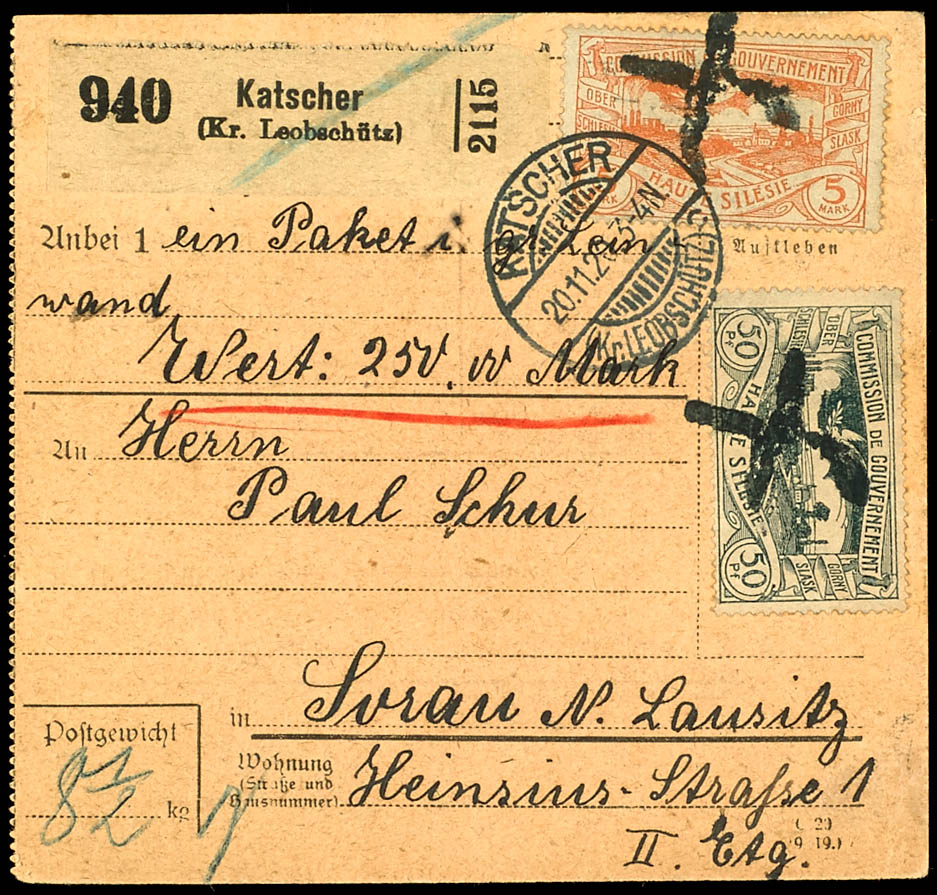 940 Katscher
(Kr. Leobschütz)
2115
COMMISSION GOUVERNEMENT
OBER SCHLESIEN
GÓRNY ŚLĄSK
HAUTE SILÉSIE
5 MARK 5 MARK
KATSCHER
20.11.20. 3-4N.
(Kr. LEOBSCHÜTZ)
Anbei 1 ein Paket i. gr. Lein
Aufkleben
wand
Wert: 250,00 Mark
An Herrn
Paul Schur
COMMISSION DE GOUVERNEMENT
OBER SCHLESIEN
GÓRNY ŚLĄSK
HAUTE SILÉSIE
50 Pf. 50 Pf.
in Sorau N. Lausitz
Postgewicht
8 1/2 kg
Wohnung
(Straße und
Hausnummer) Heinsius-Straße 1
II. Etg.